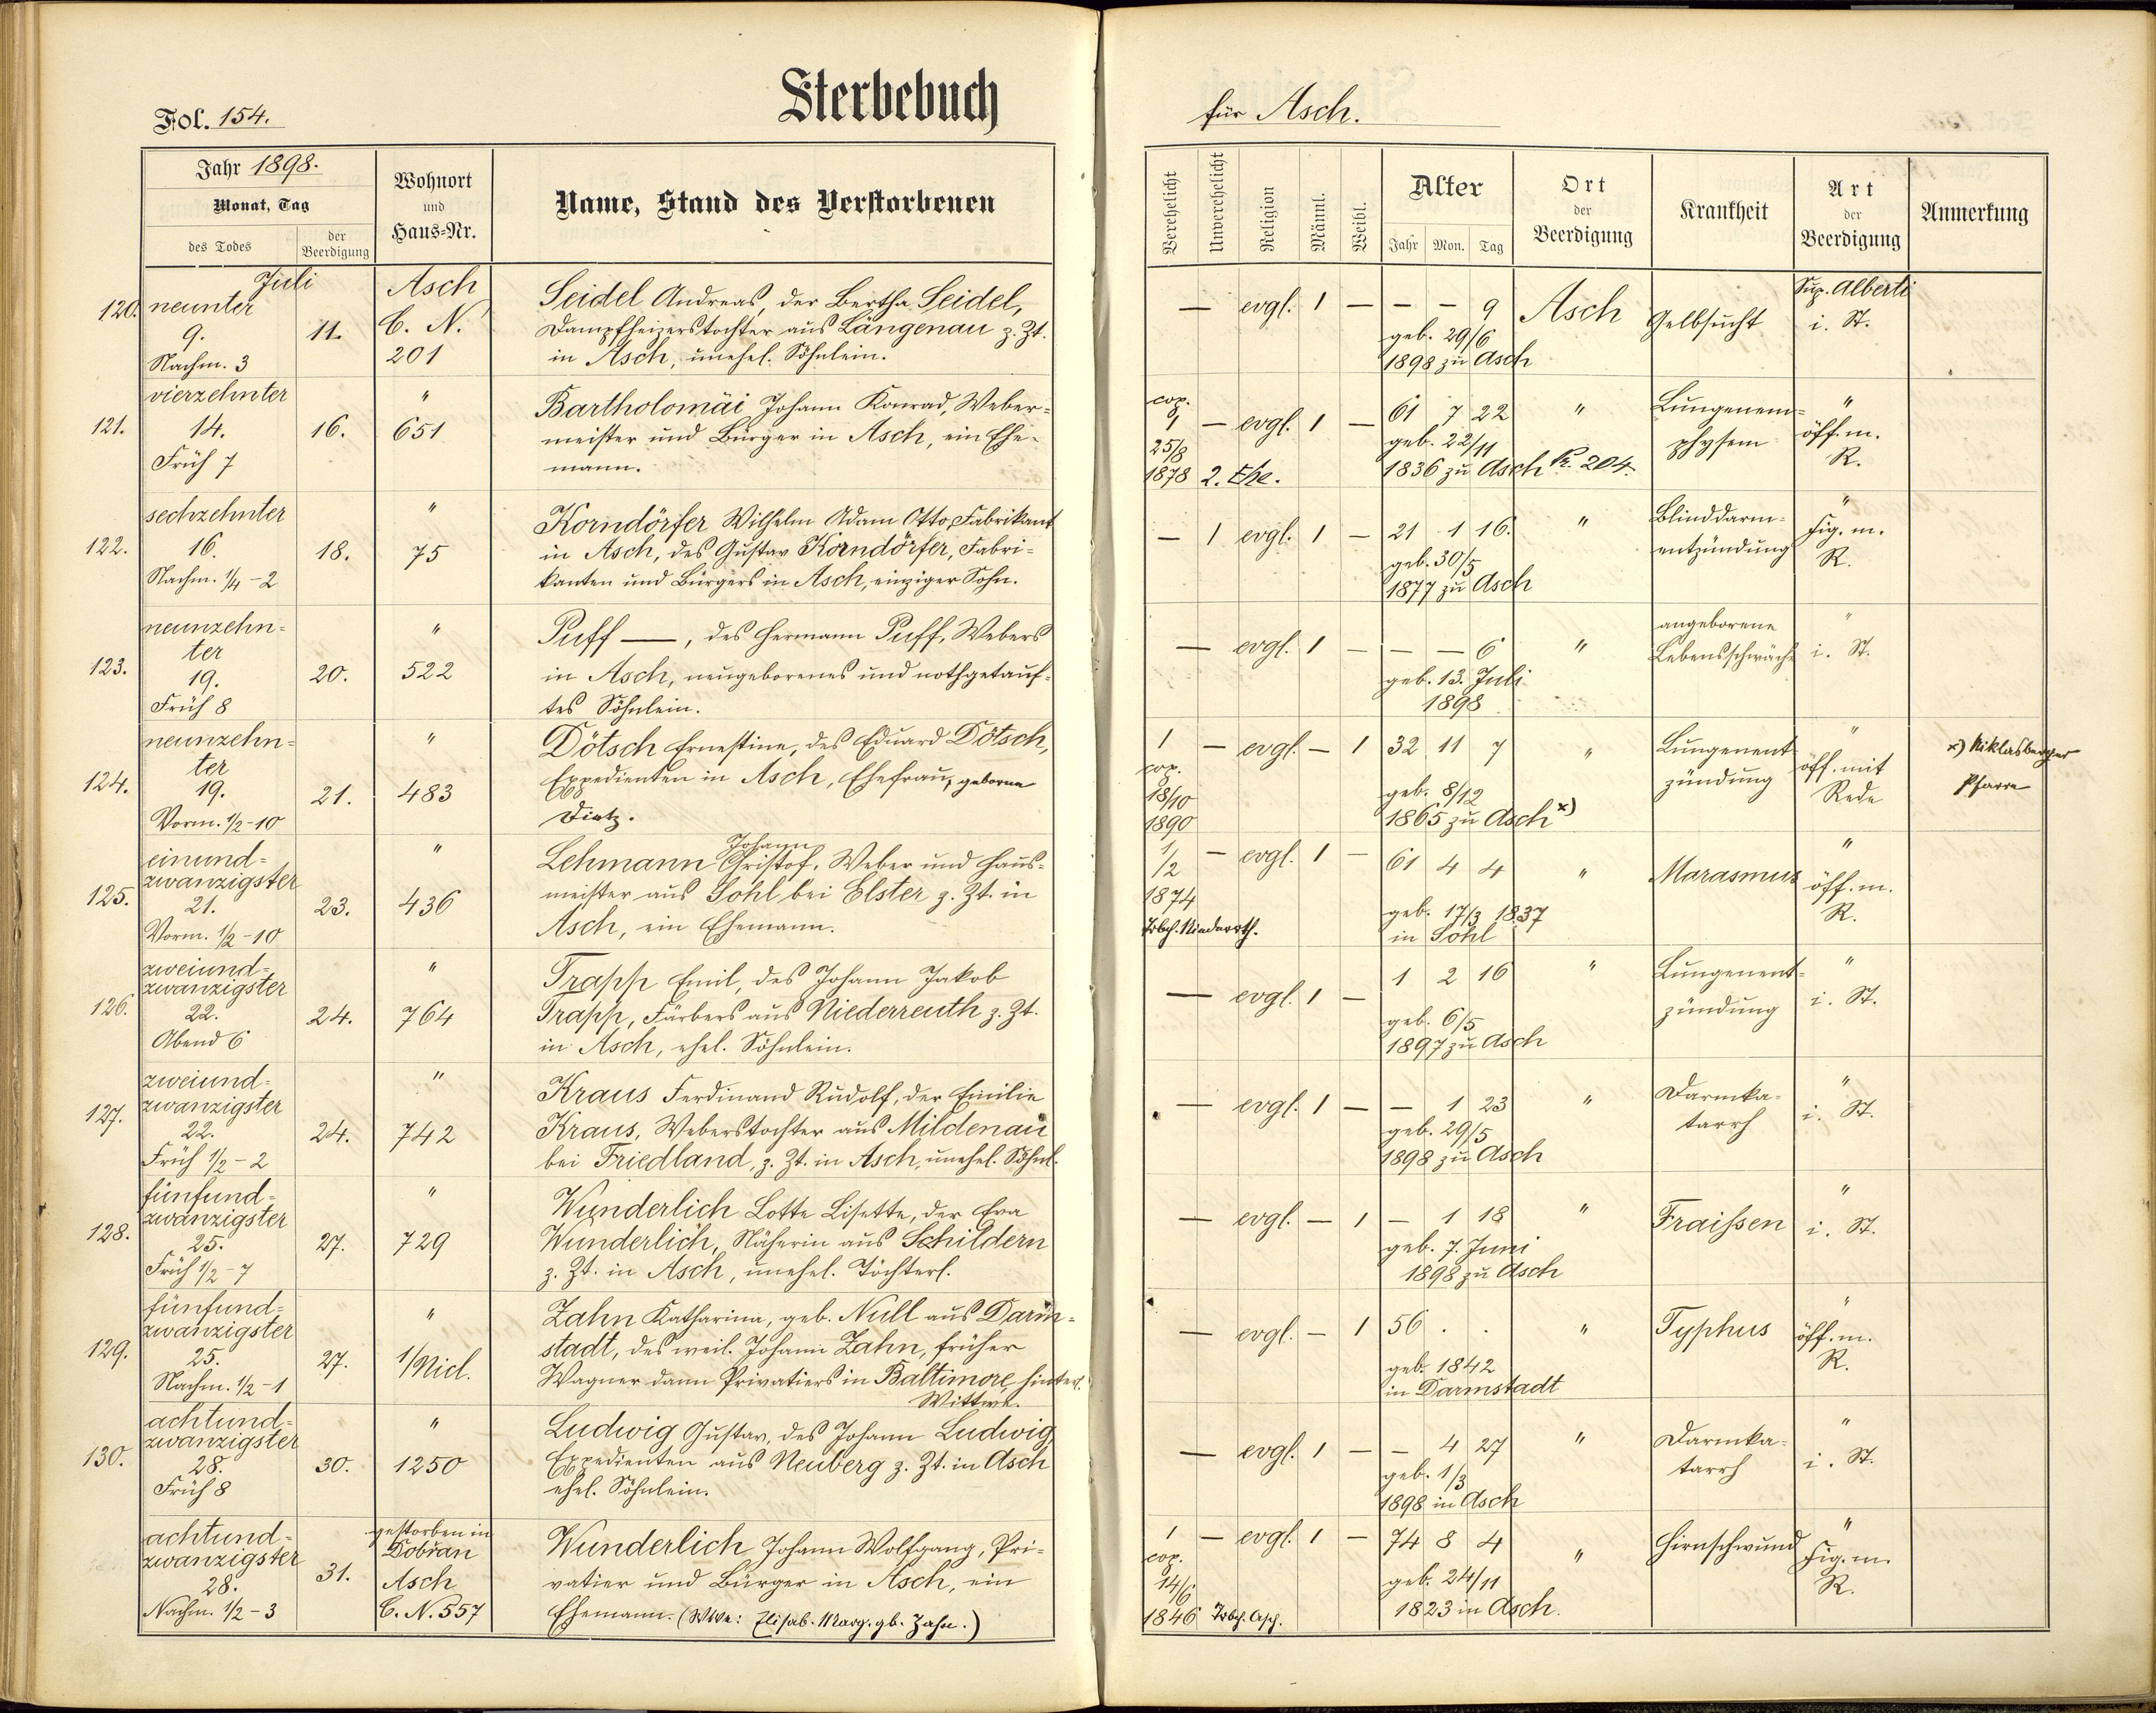 Fol. 154.
Sterbebuch
für Asch.
Jahr 1898.
Monat, Tag
des Todes
der Beerdigung
Wohnort
und
Haus-Nr.
Name, Stand des Verstorbenen
Verehelicht
Unverehelicht
Religion
Männl.
Weibl.
Alter
Jahr Mon. Tag
Ort
der
Beerdigung
Krankheit
Art
der
Beerdigung
Anmerkung
Juli
120. neunter
9.
Nachm. 3
11.
Asch
C. N.
201
Seidel Andreas, der Bertha Seidel,
Dampfheizerstochter aus Längenau z. Zt.
in Asch, unehel. Söhnlein.
— evgl. 1 — — — 9
geb. 29/6
1898 zu Asch
Asch
Gelbsucht
Sup. Alberti
i. St.
vierzehnter
121. 14.
Früh 7
16.
"
651
Bartholomäi Johann Konrad, Weber-
meister und Bürger in Asch, ein Ehe-
mann.
cop.
1 — evgl. 1 — 61 7 22
25/8
1878 2. Ehe.
geb. 22/11
1836 zu Asch P. 204.
"
Lungenem-
physem
"
öff. m.
R.
sechzehnter
122. 16.
Nachm. 1/4-2
18.
"
75
Korndörfer Wilhelm Adam Otto, Fabrikant
in Asch, des Gustav Korndörfer, Fabri-
kanten und Bürgers in Asch, einziger Sohn.
— 1 evgl. 1 — 21 1 16.
geb. 30/5
1877 zu Asch
"
Blinddarm-
entzündung
"
Fig. m.
R.
neunzehn-
ter
123. 19.
Früh 8
20.
"
522
Puff —, des Hermann Puff, Webers
in Asch, neugeborenes und nothgetauf-
tes Söhnlein.
— evgl. 1 — — — 6
geb. 13. Juli
1898
"
angeborene
Lebensschwäche
"
i. St.
neunzehn-
ter
124. 19.
Vorm. 1/2-10
21.
"
483
Dötsch Ernestine, des Eduard Dötsch,
Expedienten in Asch, Ehefrau, geborne
Dietz.
1 — evgl. — 1 32 11 7
cop.
18/10
1890
geb. 8/12
1865 zu Asch x)
"
Lungenent-
zündung
"
öff. mit
Rede
x) Niklasberger
Pfarre
einund-
zwanzigster
125. 21.
Vorm. 1/2-10
23.
"
436
Johann
Lehmann Christof, Weber und Haus-
meister aus Sohl bei Elster z. Zt. in
Asch, ein Ehemann.
1/2 — evgl. 1 — 61 4 4
1874
Trbch. Niederrth.
geb. 17/3 1837
in Sohl
"
Marasmus
"
öff. m.
R.
zweiund-
zwanzigster
126. 22.
Abend 6
24.
"
764
Trapp Emil, des Johann Jakob
Trapp, Färbers aus Niederreuth z. Zt.
in Asch, ehel. Söhnlein.
— evgl. 1 — 1 2 16
geb. 6/5
1897 zu Asch
"
Lungenent-
zündung
"
i. St.
zweiund-
zwanzigster
127. 22.
Früh 1/2-2
24.
"
742
Kraus Ferdinand Rudolf, der Emilie
Kraus, Weberstochter aus Mildenau
bei Friedland, z. Zt. in Asch, unehel. Söhnl.
— evgl. 1 — — 1 23
geb. 29/5
1898 zu Asch
"
Darmka-
tarrh
"
i. St.
fünfund-
zwanzigster
128. 25.
Früh 1/2-7
27.
"
729
Wunderlich Lotte Lisette, der Eva
Wunderlich, Näherin aus Schildern
z. Zt. in Asch, unehel. Töchterl.
— evgl. — 1 — 1 18
geb. 7. Juni
1898 zu Asch
"
Fraißen
"
i. St.
fünfund-
zwanzigster
129. 25.
Nachm. 1/2-1
27.
"
1/Nicl.
Zahn Katharina, geb. Null aus Darm-
stadt, des weil. Johann Zahn, früher
Wagner dann Privatiers in Baltimore hinterl.
Wittwe.
— evgl. — 1 56 . .
geb. 1842
in Darmstadt
"
Typhus
"
öff. m.
R.
achtund-
zwanzigster
130. 28.
Früh 8
30.
"
1250
Ludwig Gustav, des Johann Ludwig,
Expedienten aus Neuberg z. Zt. in Asch
ehel. Söhnlein.
— evgl. 1 — — 4 27
geb. 1/3
1898 in Asch
"
Darmka-
tarrh
"
i. St.
achtund-
zwanzigster
28.
Nachm. 1/2-3
31.
gestorben in
Dobřan
Asch
C. N. 557
Wunderlich Johann Wolfgang, Pri-
vatier und Bürger in Asch, ein
Ehemann. (Wwe: Elisab. Marg. gb. Zahn.)
1 — evgl. 1 — 74 8 4
cop.
14/6
1846 Trbch. Asch.
geb. 24/11
1823 in Asch.
"
Hirnschwund
"
Fig. m.
R.